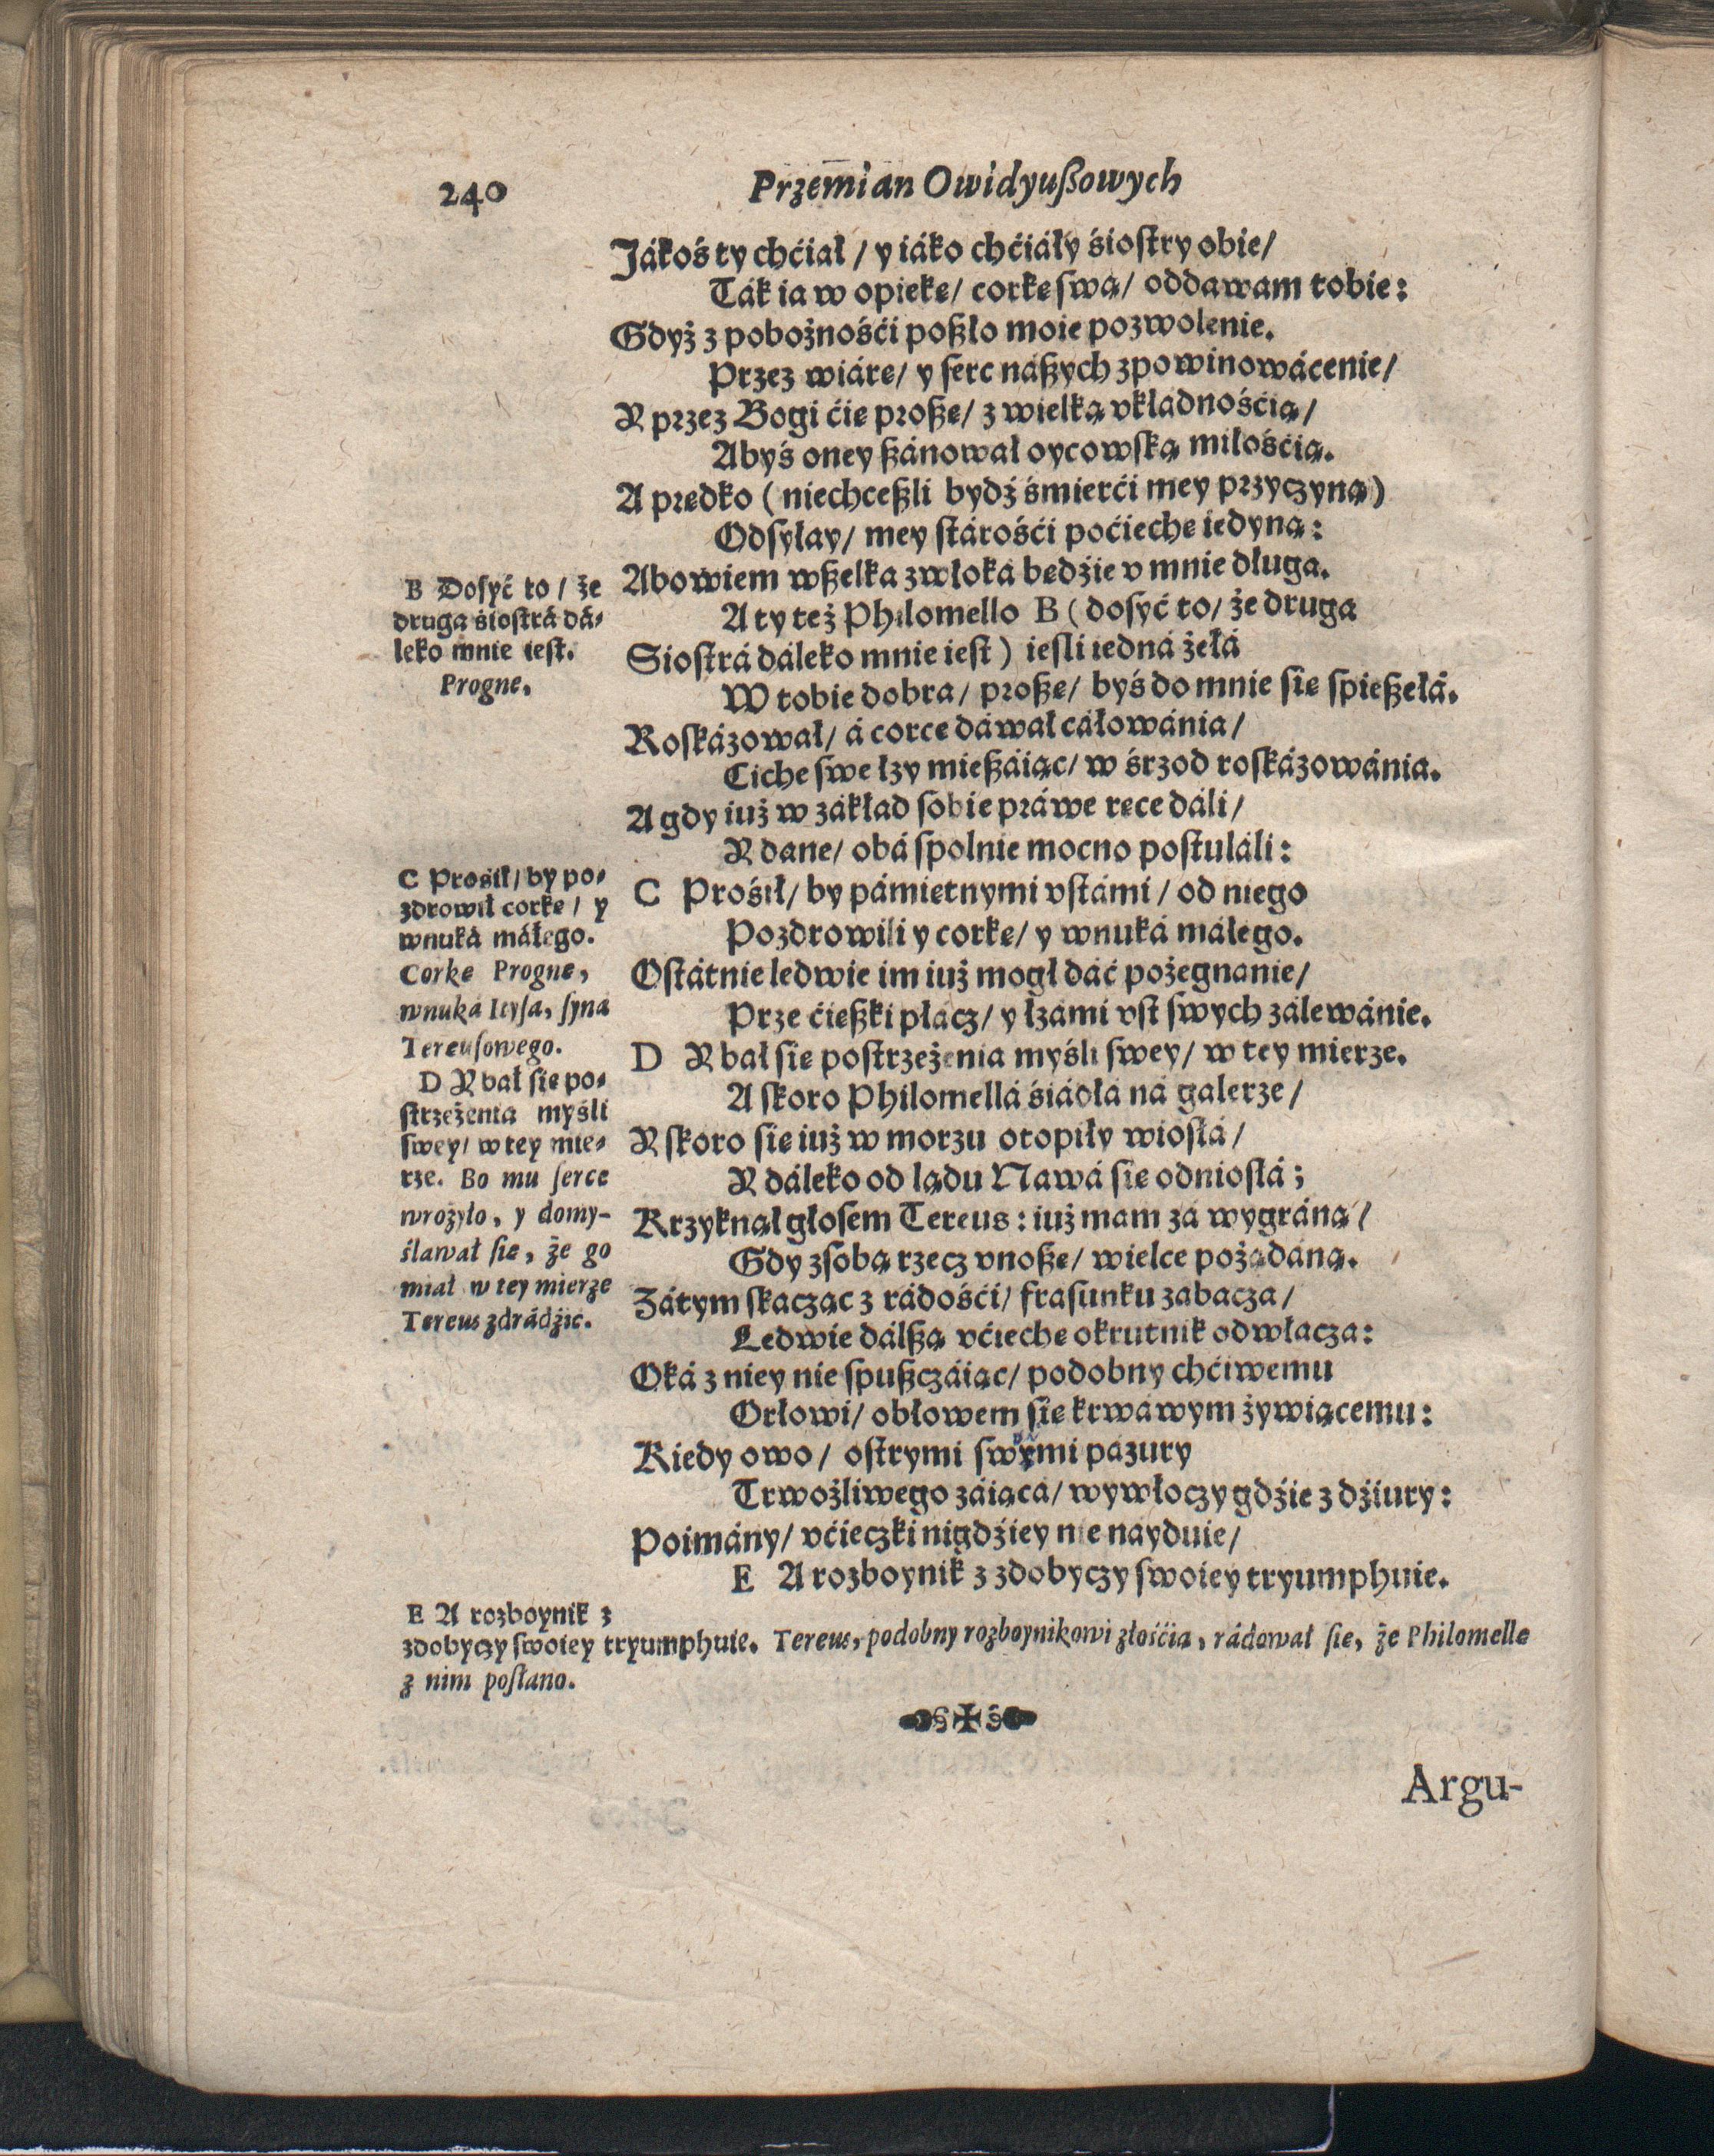 240
Przemian Owidyußowych
Jákoś ty chćiał / y iáko chćiáły śiostry obie/
Ták ia w opiekę/ corkę swą/ oddawam tobie:
Gdyż z pobożnośći poßło moie pozwolenie.
Przez wiárę/ y serc náßych zpowinowácenie/
Y przez Bogi ćię proßę/ z wielką vkładnośćią/
Abyś oney ßánował oycowską miłośćią.
A prędko (niechceßli bydź śmierći mey przyczyną)
Odsyłay/ mey stárośći poćiechę iedyną:
Abowiem wßelka zwłoká będźie v mnie długa.
A ty też Philomello B (dosyć to/ że druga
Siostrá dáleko mnie iest) iesli iedná żełá
W tobie dobra/ proßę/ byś do mnie się spießełá.
Roskázował/ á corce dáwał cáłowánia/
Ciche swe łzy mießáiąc/ w śrzod roskázowánia.
A gdy iuż w zakład sobie práwe ręce dáli/
Y dane/ obá spolnie mocno postuláli:
C Prośił/ by pámiętnymi vstámi/ od niego
Pozdrowili y corkę/ y wnuká máłego.
Ostátnie ledwie im iuż mogł dáć pożegnanie/
Prze ćięßki płácz/ y łzámi vst swych zálewánie.
D Y bał się postrzeżenia myśli swey/ w tey mierze.
A skoro Philomellá śiádłá ná galerze/
Y skoro się iuż w morzu otopiły wiosłá/
Y dáleko od lądu Nawá się odniosłá;
Krzyknął głosem Tereus: iuż mam zá wygráną/
Gdy zsobą rzecz vnoßę/ wielce pożądáną.
Zátym skacząc z rádośći/ frasunku zabacza/
Ledwie dálßą vćiechę okrutnik odwłacza:
Oká z niey nie spußczáiąc/ podobny chćiwemu
Orłowi/ obłowem się krwáwym żywiącemu:
Kiedy owo/ ostrymi swymi pázury
Trwożliwego záiąca/ wywłoczy gdźie z dźiury:
Poimány/ vćieczki nigdźiey nie nayduie/
E A rozboynik z zdobyczy swoiey tryumphuie.
B Dosyć to/ że
druga siostrá dá-
leko mnie iest.
Progne.
C Prosił/ by po-
zdrowił corkę/ y
wnuká máłego.
Corkę Prognę,
wnuká Itysa, syná
Tereusowego.
D Y bał się po-
strzeżenia myśli
swey/ w tey mie-
rze. Bo mu serce
wrożyło, y domy-
ślawał się, że go
miał w tey mierze
Tereus zdrádźic.
E A rozboynik z
zdobyczy swoiey tryumphuie. Tereus, podobny rozboynikowi złośćią, rádował się, że Philomellę
z nim posłano.
Argu-